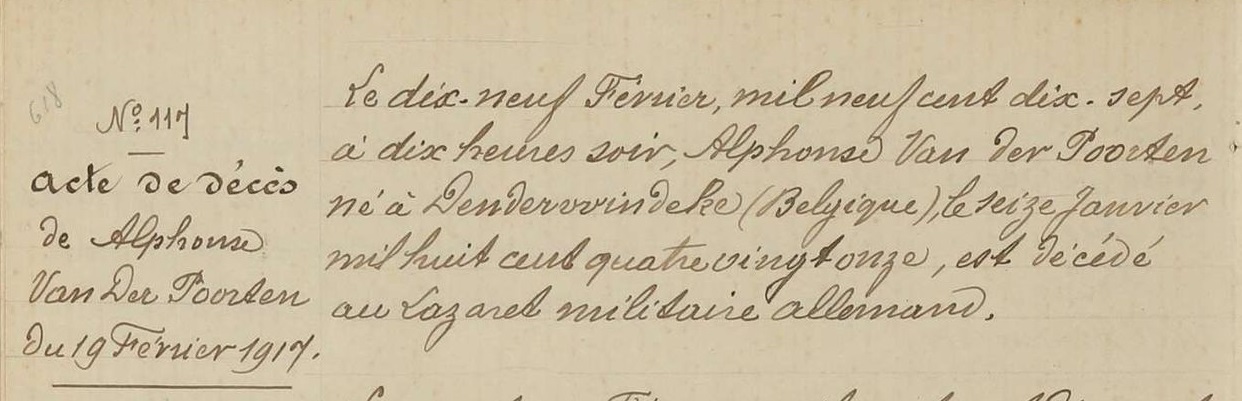 618
Nº 117
acte de décès
de Alphonse
Van Der Poorten
du 19 Février 1917.
Le dix-neuf Février, mil neuf cent dix-sept,
à dix heures soir, Alphonse Van der Poorten
né à Dendervvindeke (Belgique), le seize Janvier
mil huit cent quatre vingt onze, est décédé
au Lazaret militaire allemand.